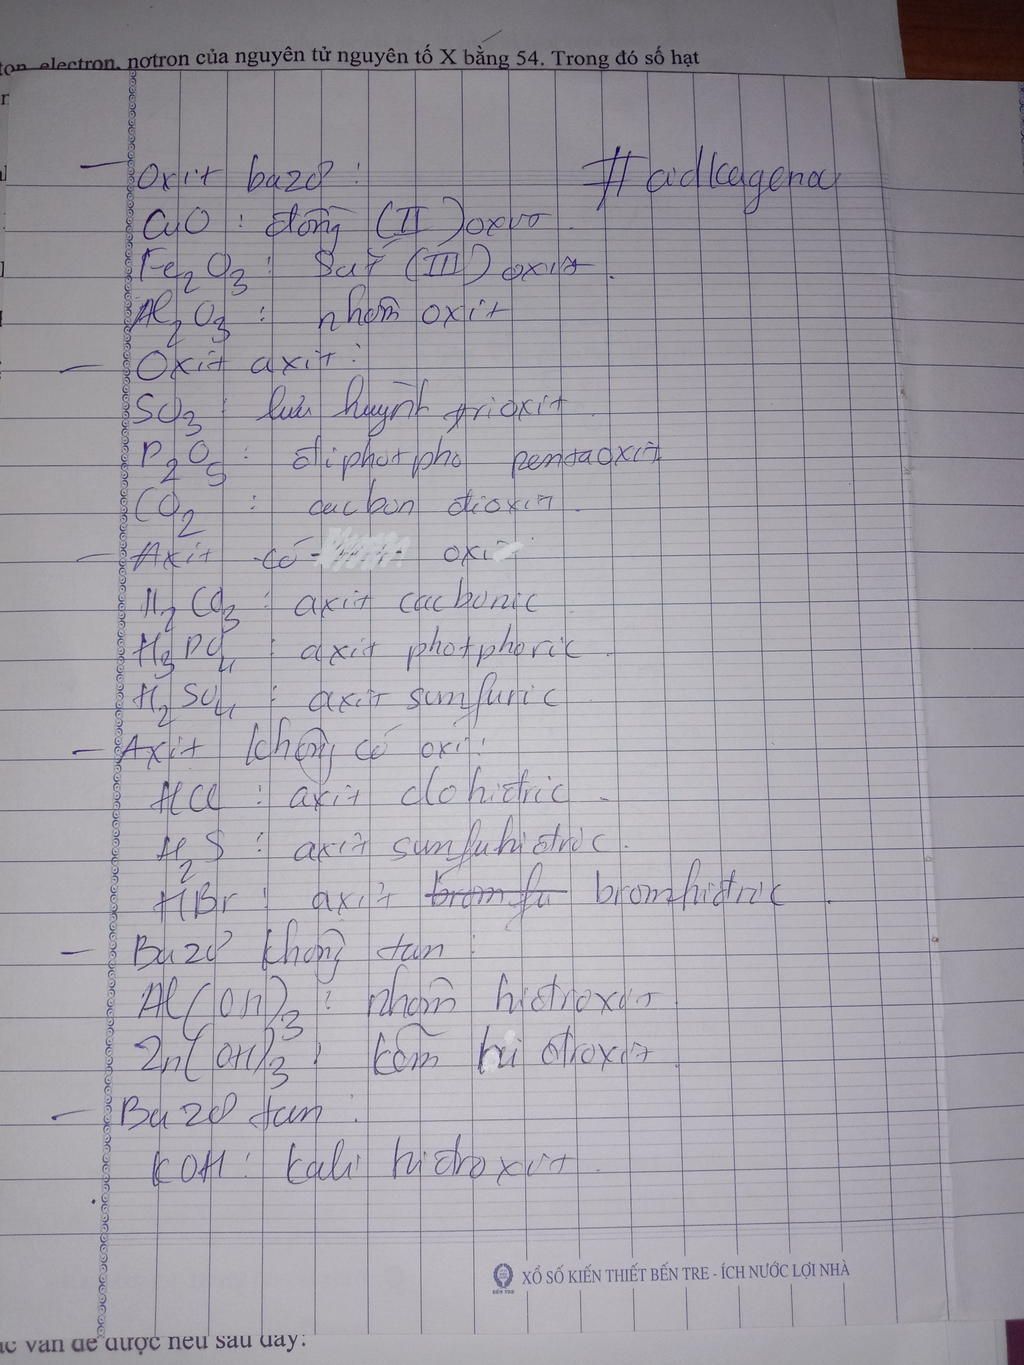 electron, nơtron của nguyên tử nguyên tố X bằng 54. Trong đó số hạt
- Oxit bazơ: #adkagena
CuO : đồng (II) oxit.
Fe2O3 : Sắt (III) oxit.
Al2O3 : nhôm oxit
- Oxit axit:
SO3 : lưu huỳnh trioxit.
P2O5 : điphotpho pentaoxit
CO2 : cacbon đioxit.
- Axit có oxi:
H2CO3 : axit cacbonic.
H3PO4 : axit photphoric.
H2SO4 : axit sunfuric
- Axit không có oxi:
HCl : axit clohiđric.
H2S : axit sunfuhiđric.
HBr : axit bromhiđric.
- Bazơ không tan:
Al(OH)3 : nhôm hiđroxit
Zn(OH)3 : kẽm hiđroxit.
- Bazơ tan:
KOH : kali hiđroxit.
XỔ SỐ KIẾN THIẾT BẾN TRE - ÍCH NƯỚC LỢI NHÀ
BẾN TRE
vấn đề được nêu sau đây: